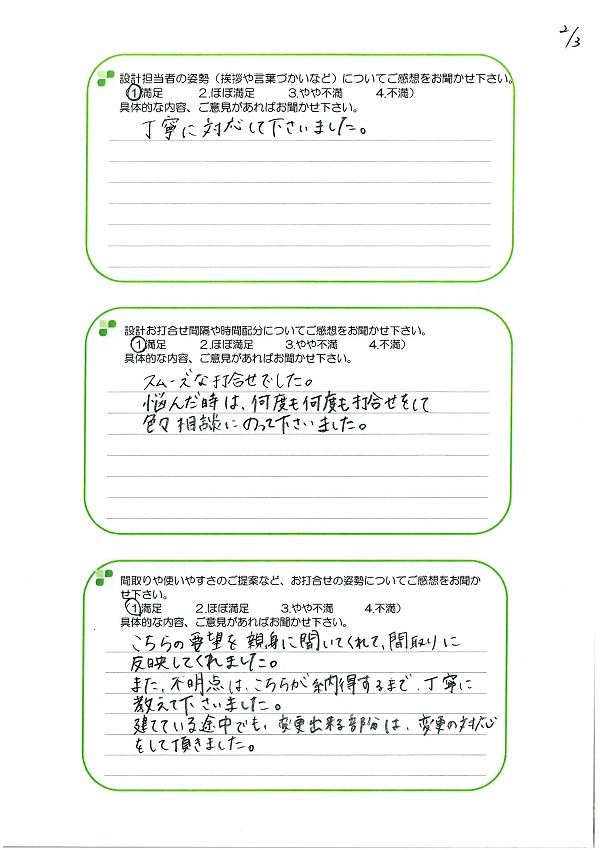 2/3
設計担当者の姿勢(挨拶や言葉づかいなど)についてご感想をお聞かせ下さい。
①満足 2.ほぼ満足 3.やや不満 4.不満)
具体的な内容、ご意見があればお聞かせ下さい。
丁寧に対応して下さいました。
設計お打合せ間隔や時間配分についてご感想をお聞かせ下さい。
①満足 2.ほぼ満足 3.やや不満 4.不満)
具体的な内容、ご意見があればお聞かせ下さい。
スムーズな打合せでした。
悩んだ時は、何度も何度も打合せをして
色々相談にのって下さいました。
間取りや使いやすさのご提案など、お打合せの姿勢についてご感想をお聞か
せ下さい。
①満足 2.ほぼ満足 3.やや不満 4.不満)
具体的な内容、ご意見があればお聞かせ下さい。
こちらの要望を親身に聞いてくれて、間取りに
反映してくれました。
また、不明点は、こちらが納得するまで、丁寧に
教えて下さいました。
建てている途中でも、変更出来る部分は、変更の対応
をして頂きました。